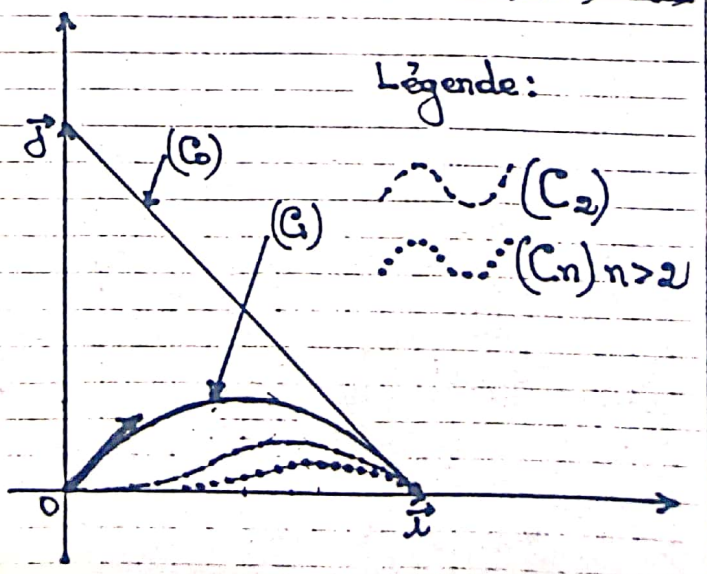 Légende:
j⃗
(C₀)
(C₂)
(C₁)
(Cn) n>2
O
i⃗